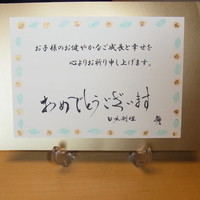 お子様のお健やかなご成長と幸せを
心よりお祈り申し上げます。
おめでとうございます